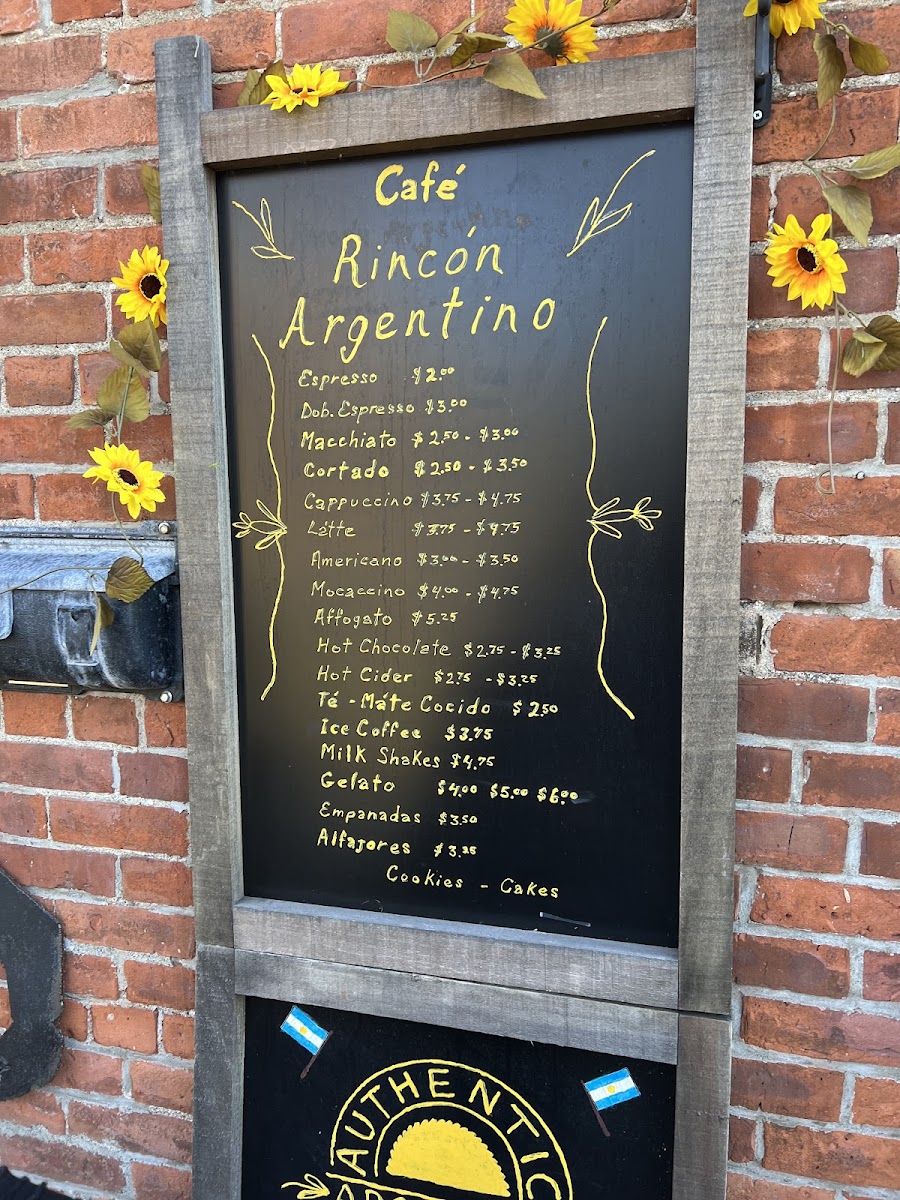 Café
Rincón
Argentino
Espresso $2.00
Dob. Espresso $3.00
Macchiato $2.50 - $3.00
Cortado $2.50 - $3.50
Cappuccino $3.75 - $4.75
Látte $3.75 - $4.75
Americano $3.00 - $3.50
Mocaccino $4.00 - $4.75
Affogato $5.25
Hot Chocolate $2.75 - $3.25
Hot Cider $2.75 - $3.25
Té - Máte Cocido $2.50
Ice Coffee $3.75
Milk Shakes $4.75
Gelato $4.00 $5.00 $6.00
Empanadas $3.50
Alfajores $3.25
Cookies - Cakes
AUTHENTIC